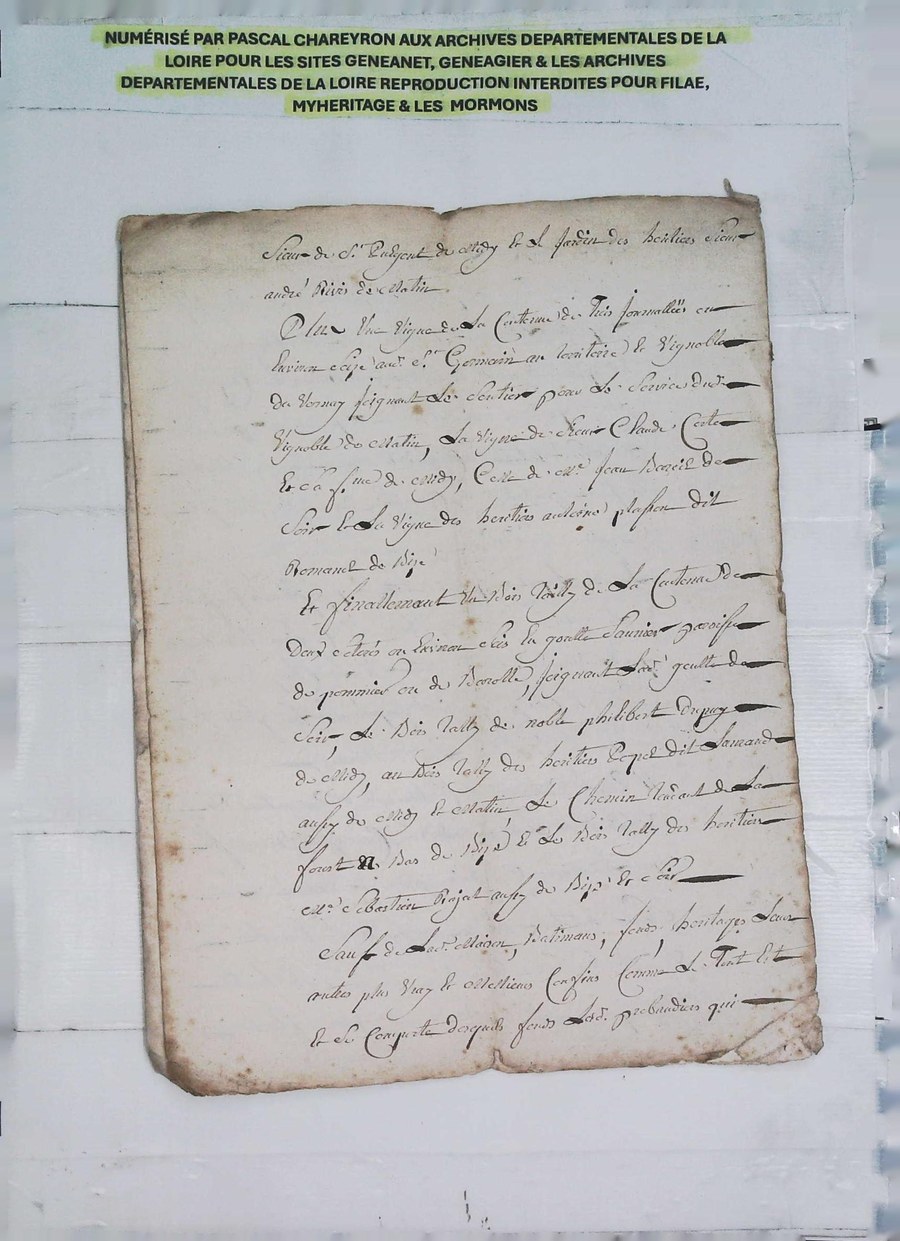 NUMÉRISÉ PAR PASCAL CHAREYRON AUX ARCHIVES DEPARTEMENTALES DE LA
LOIRE POUR LES SITES GENEANET, GENEAGIER & LES ARCHIVES
DEPARTEMENTALES DE LA LOIRE REPRODUCTION INTERDITES POUR FILAE,
MYHERITAGE & LES MORMONS
Sieur de St de Midy Et Jardin des heritiers Sieur
andré de Matin
Plus Une Vigne de La Contenue de Trois Journallées ou
Environ aud. St. Germain au territoire Et Vignoble
du Vernay Joignant Le Sentier pour Le Service dud.
Vignoble de Matin, La Vigne de Sieur Claude
Et sa de Midy, Celle de Mr. Jean de
Soir Et La Vigne des heritiers dit
Romanet de Bize
Et finallement Un Bois Tally de La Contenue de
Deux ou Environ En goutte Saunier paroisse
de pommier ou de Joignant Lad. goutte de
Soir, Le Bois Tally de noble philibert Dupuy
de Midy, au Bois Tally des heritiers Popet dit
aussy de Midy Et Matin Le Chemin Tendant de La
Bas de Bize Et Le Bois Tally des heritiers
Mr. Sebastien Rajat aussy de Bize Et Soir
Sauf de Lad. Maison, Batimans, fonds, heritages Leurs
autres plus Vray Et Meilleurs Confins Comme Le Tout
Et Se Comporte desquels fonds Led. prebandier qui